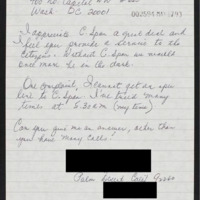 400 No. Capitol N.W.
Wash. DC 20001
I appreciate C-Span a great deal and
I feel you provide a service to the
citizens. Without C-Span we would
be in the dark.
One complaint, I cannot get an open
line to C-Span. I've tried many
times at 5:30 a.m. (my time)
Can you give me an answer, other than
you have "many calls".
Palm Desert Calif.